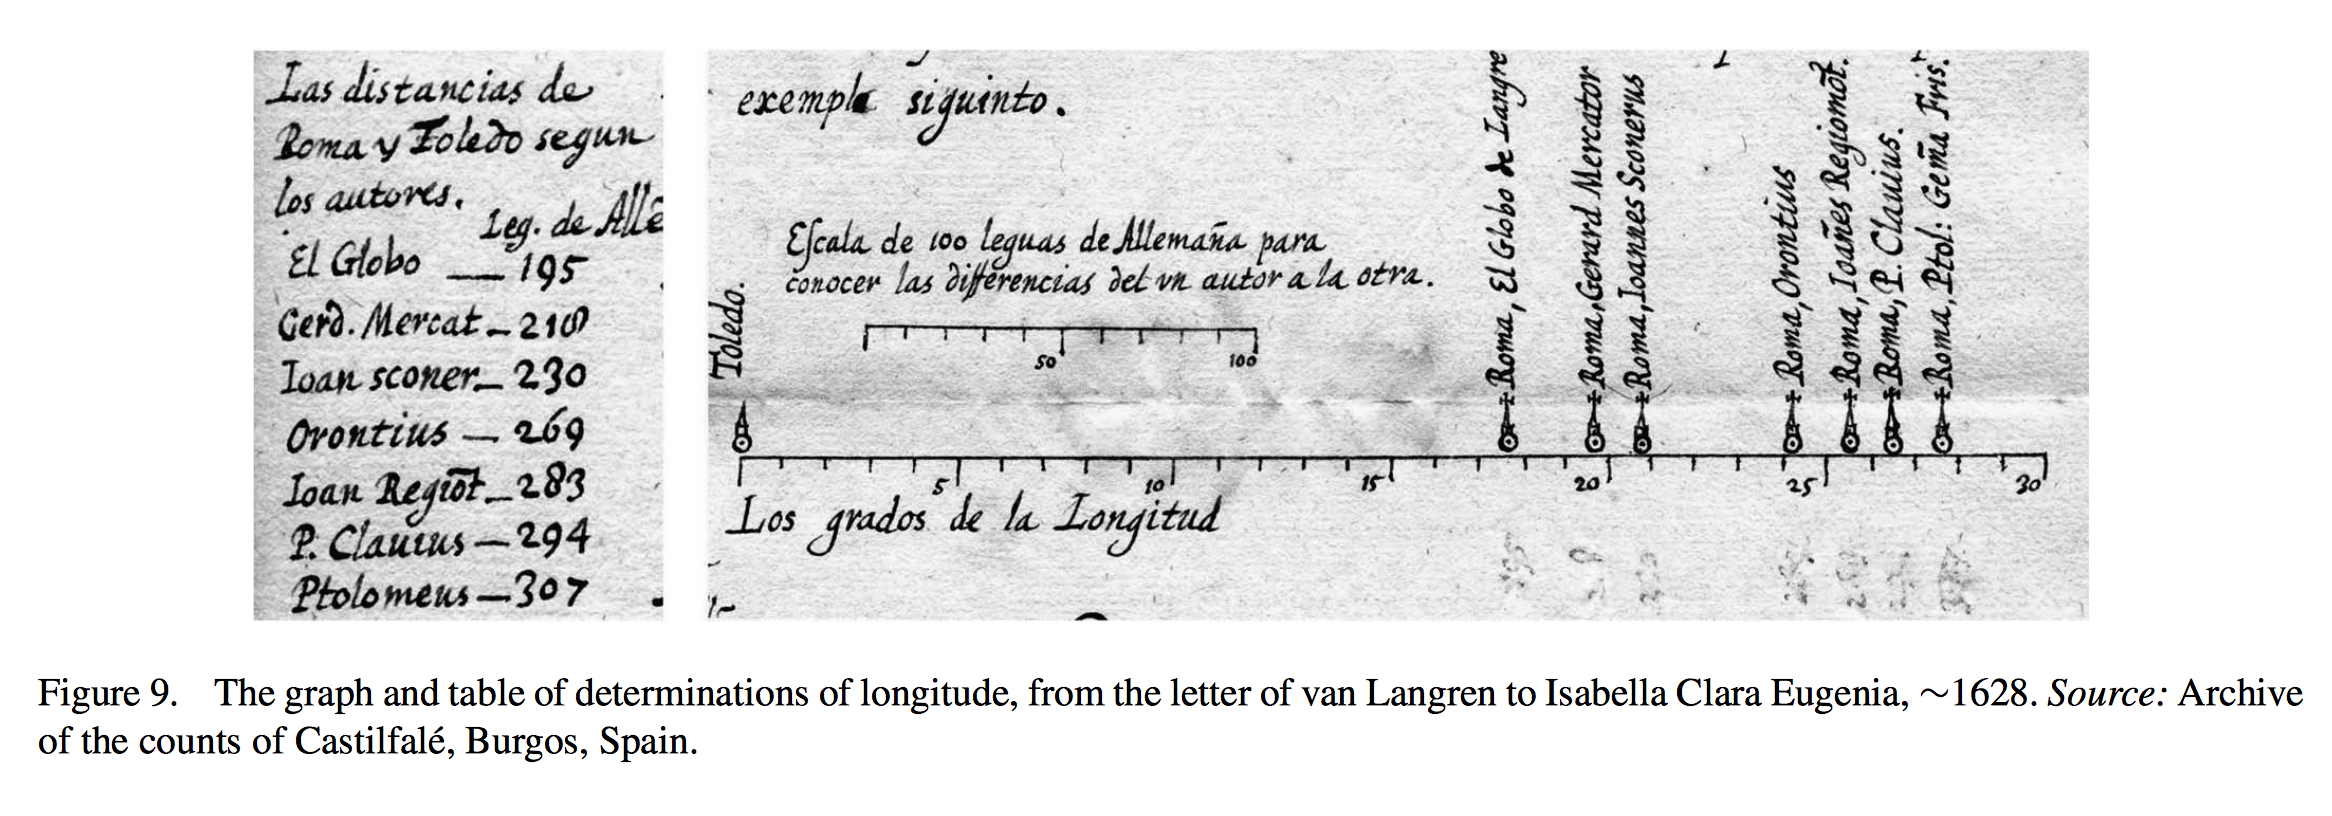 Las distancias de
Roma y Toledo segun
los autores.
Leg. de Allē
El Globo — 195
Gerd. Mercat — 210
Ioan sconer — 230
Orontius — 269
Ioan Regiōt — 283
P. Clauius — 294
Ptolomeus — 307
exemplo siguinto.
Escala de 100 leguas de Allemaña para
conocer las differencias del vn autor a la otra.
50
100
Toledo.
Roma, El Globo de Langre
Roma, Gerard Mercator
Roma, Ioannes Sconerus
Roma, Orontius
Roma, Ioañes Regiomōt.
Roma, P. Clauius.
Roma, Ptol: Gem̄a Fris.
5
10
15
20
25
30
Los grados de la Longitud
Figure 9. The graph and table of determinations of longitude, from the letter of van Langren to Isabella Clara Eugenia, ∼1628. Source: Archive
of the counts of Castilfalé, Burgos, Spain.